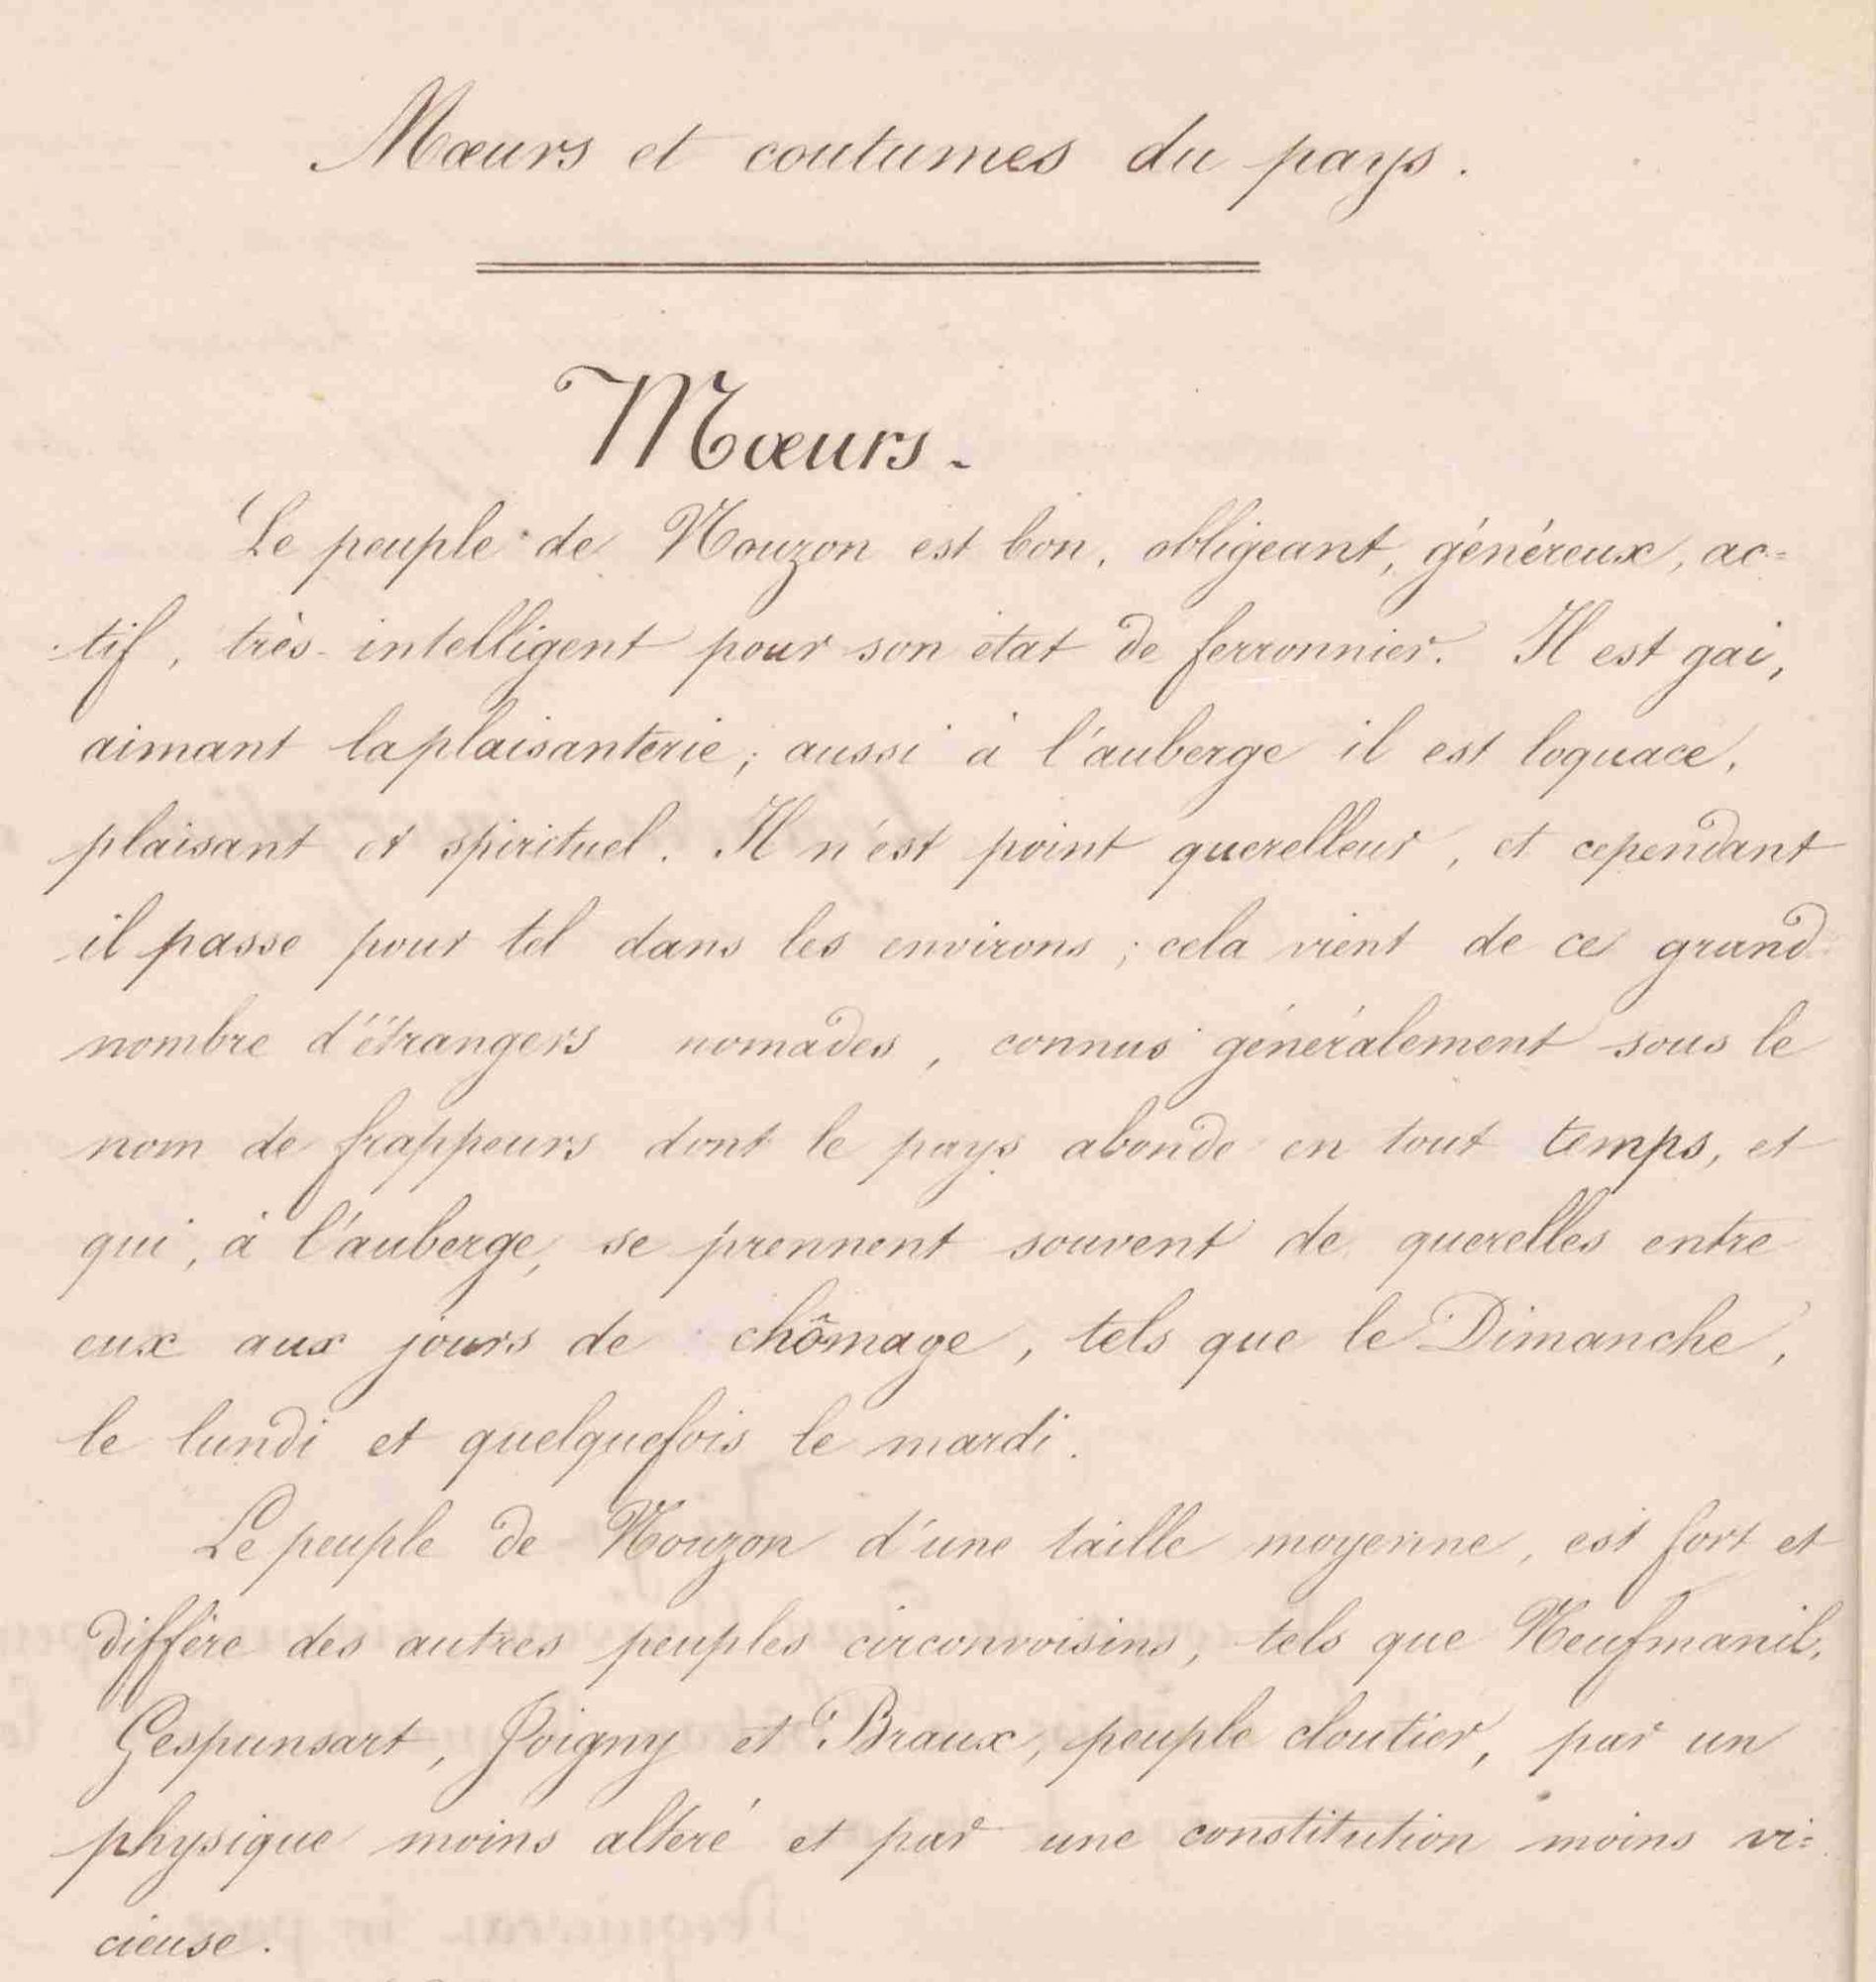 Mœurs et coutumes du pays.
Mœurs.
Le peuple de Nouzon est bon, obligeant, généreux, ac=
tif, très-intelligent pour son état de ferronnier. Il est gai,
aimant la plaisanterie; aussi à l'auberge il est loquace,
plaisant et spirituel. Il n'est point querelleur, et cependant
il passe pour tel dans les environs; cela vient de ce grand
nombre d'étrangers nomades, connus généralement sous le
nom de frappeurs dont le pays abonde en tout temps, et
qui, à l'auberge, se prennent souvent de querelles entre
eux aux jours de chômage, tels que le Dimanche,
le lundi et quelquefois le mardi.
Le peuple de Nouzon d'une taille moyenne, est fort et
diffère des autres peuples circonvoisins, tels que Neufmanil,
Gespunsart, Joigny et Braux, peuple cloutier, par un
physique moins altéré et par une constitution moins vi=
cieuse.